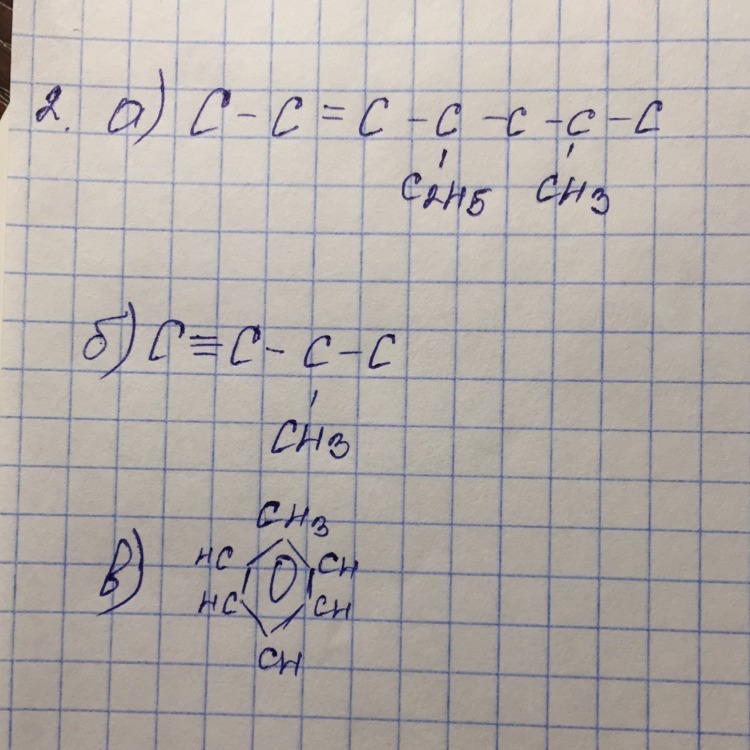 2. а) C - C = C - C - C - C - C
C2H5 CH3
б) C ≡ C - C - C
CH3
в)
CH3
HC CH
HC CH
CH